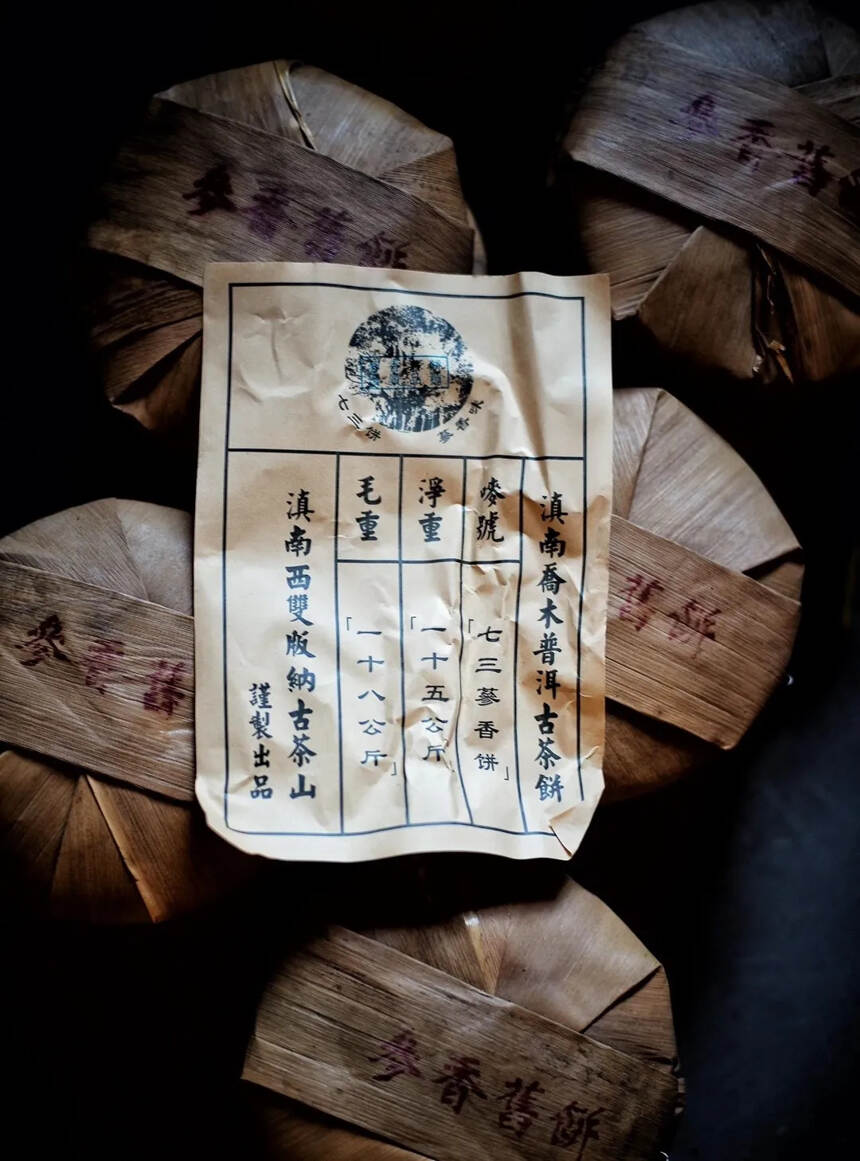 參香舊餅
參香舊
七三饼
滇南喬木普洱古茶餅
嘜號
「七三蔘香饼」
淨重
「一十五公斤」
毛重
「一十八公斤」
滇南西雙版納古茶山
謹製出品
參香舊
舊餅
參香舊餅